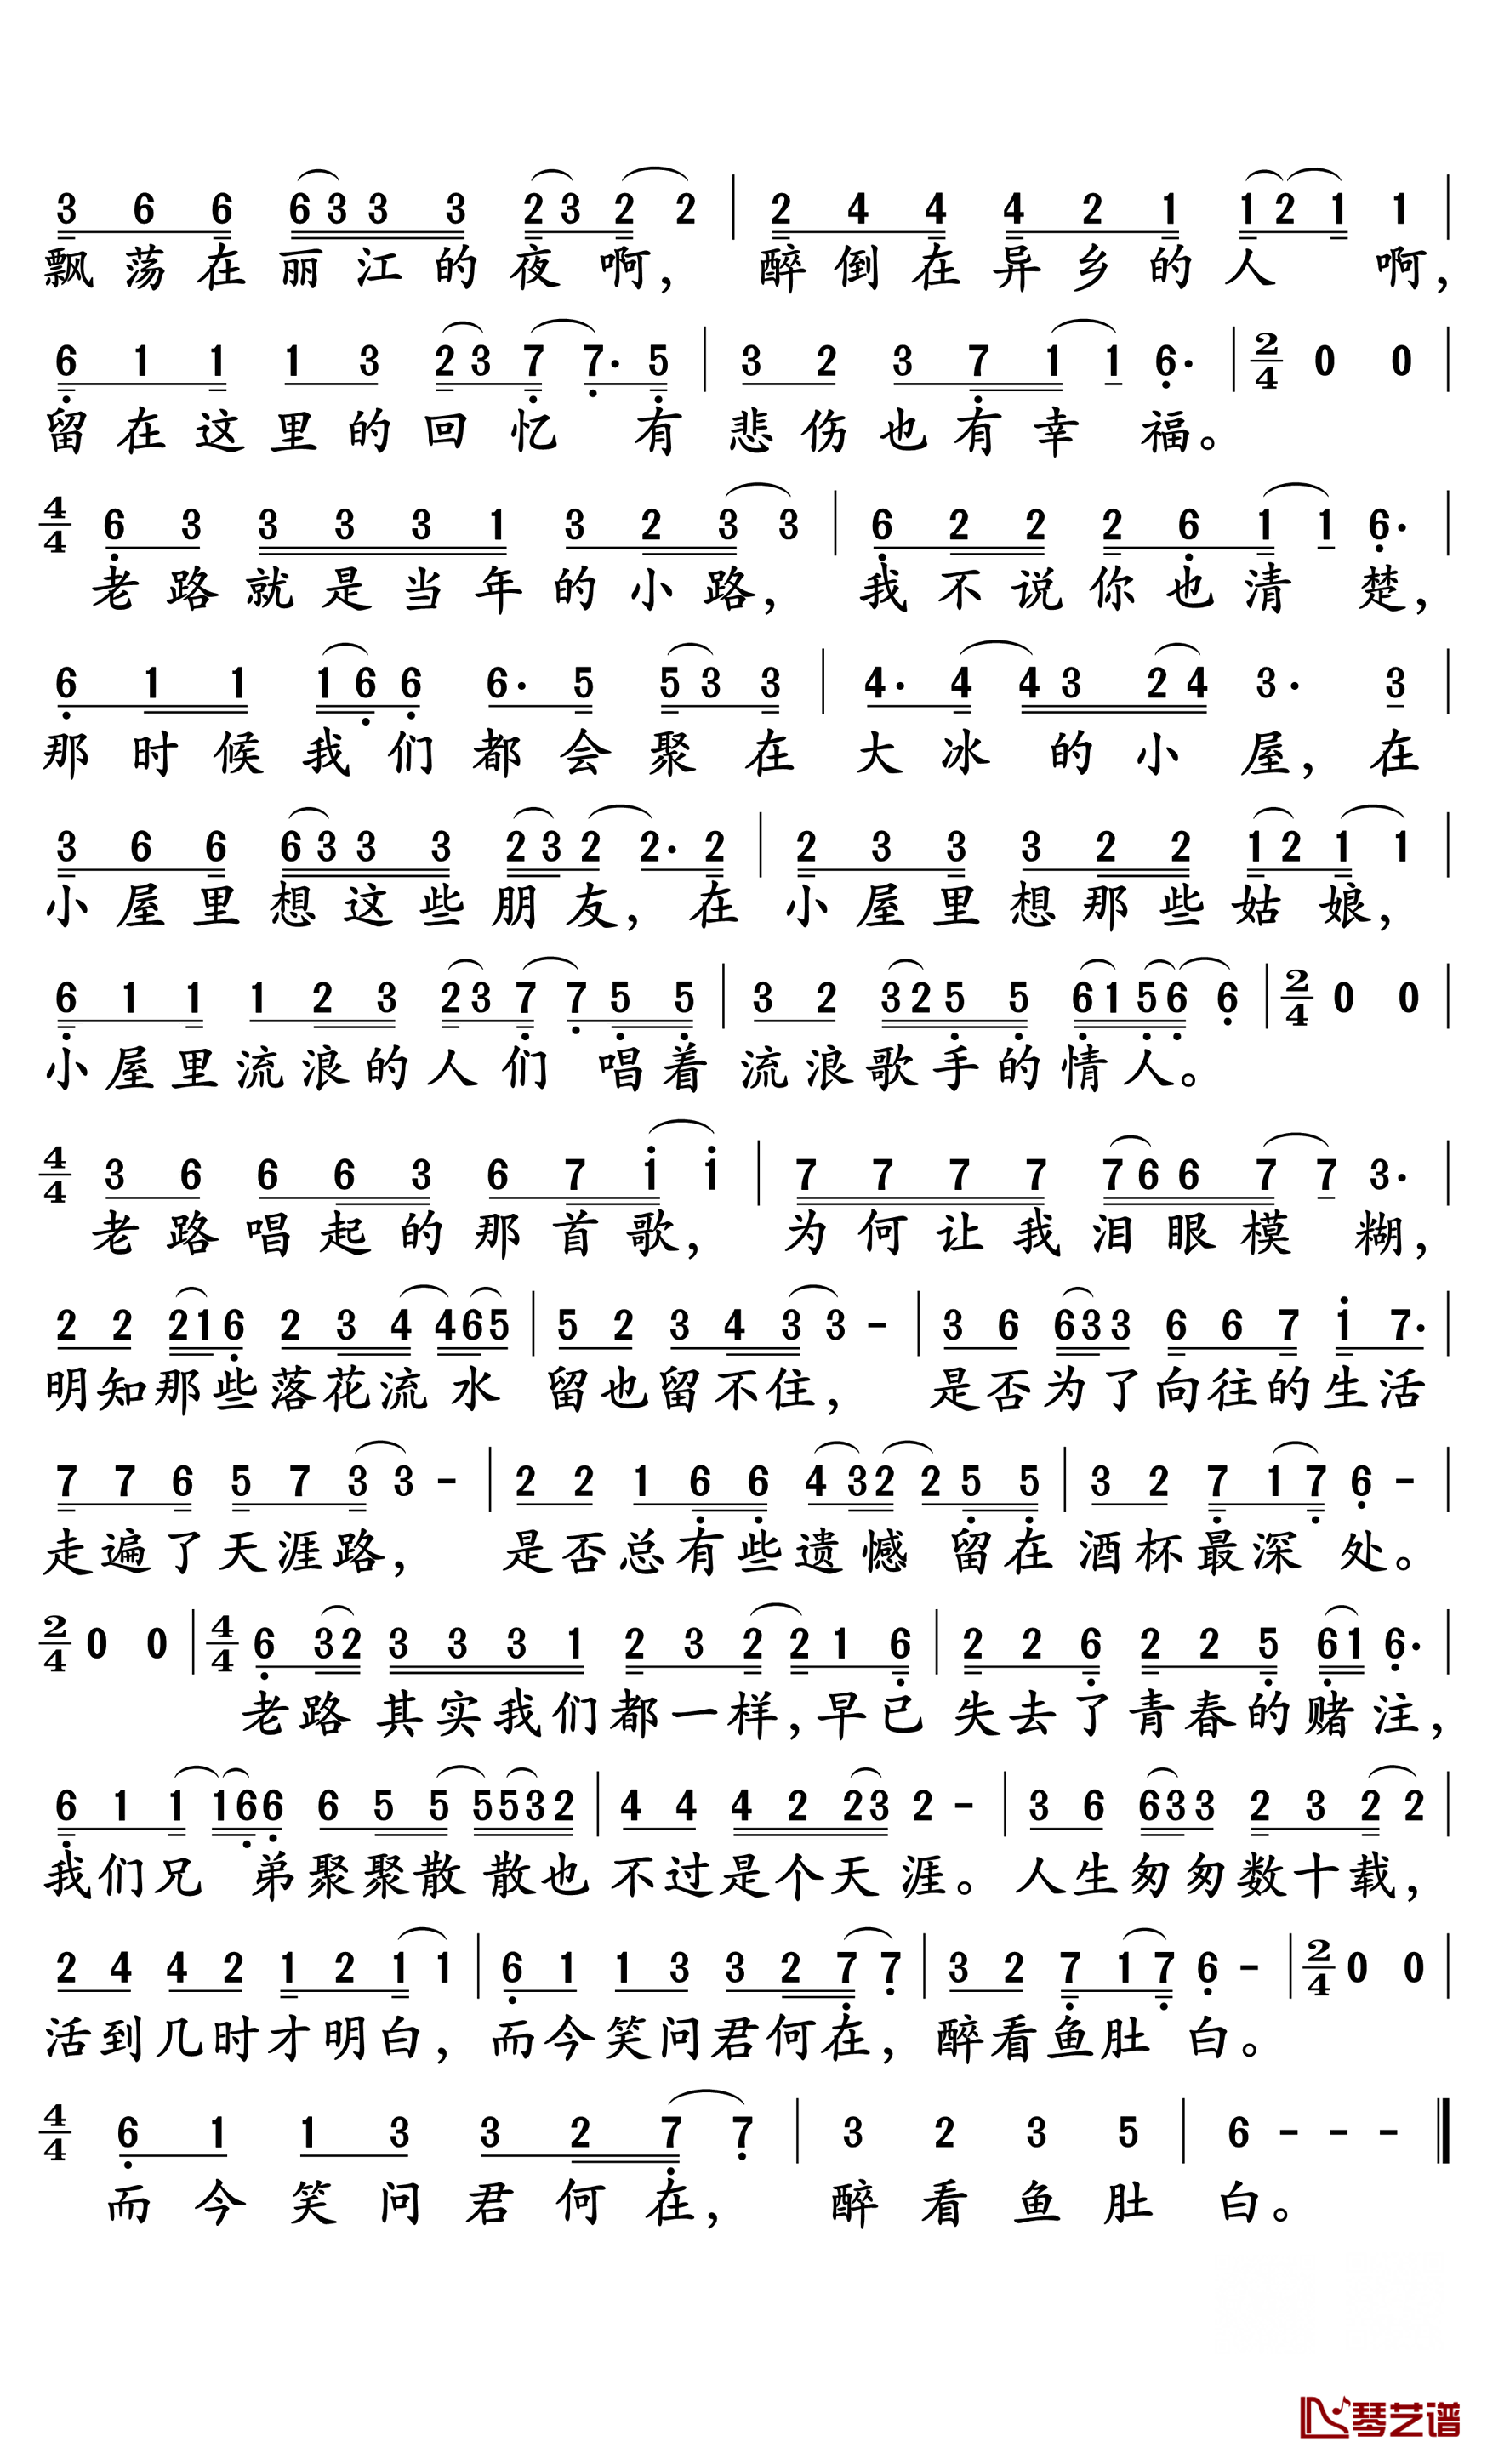 3 6 6 6 3 3 3 2 3 2 2 | 2 4 4 4 2 1 1 2 1 1 |
飘荡在丽江的夜啊，醉倒在异乡的人 啊，
6 1 1 1 3 2 3 7 7· 5 | 3 2 3 7 1 1 6· | 2/4 0 0 |
留在这里的回忆 有悲伤也有幸 福。
4/4 6 3 3 3 3 1 3 2 3 3 | 6 2 2 2 6 1 1 6· |
老路就是当年的小路，我不说你也清 楚，
6 1 1 1 6 6 6· 5 5 3 3 | 4· 4 4 3 2 4 3· 3 |
那时候我们都会聚在大冰 的小屋，在
3 6 6 6 3 3 3 2 3 2 2· 2 | 2 3 3 3 2 2 1 2 1 1 |
小屋里想这些朋友，在小屋里想那些姑娘，
6 1 1 1 2 3 2 3 7 7 5 5 | 3 2 3 2 5 5 6 1 5 6 6 | 2/4 0 0 |
小屋里流浪的人们 唱着流浪歌手的情人。
4/4 3 6 6 6 3 6 7 i i | 7 7 7 7 7 6 6 7 7 3· |
老路唱起的那首歌，为何让我泪眼模 糊，
2 2 2 1 6 2 3 4 4 6 5 | 5 2 3 4 3 3 - | 3 6 6 3 3 6 6 7 i 7· |
明知那些落花流水 留也留不住， 是否为了向往的生活
7 7 6 5 7 3 3 - | 2 2 1 6 6 4 3 2 2 5 5 | 3 2 7 1 7 6 - |
走遍了天涯路， 是否总有些遗憾 留在酒杯最深 处。
2/4 0 0 | 4/4 6 3 2 3 3 3 1 2 3 2 2 1 6 | 2 2 6 2 2 5 6 1 6· |
老路其实我们都一样，早已失去了青春的赌注，
6 1 1 1 6 6 6 5 5 5 5 3 2 | 4 4 4 2 2 3 2 - | 3 6 6 3 3 2 3 2 2 |
我们兄 弟聚聚散 散也不过是个天涯。人生匆匆数十载，
2 4 4 2 1 2 1 1 | 6 1 1 3 3 2 7 7 | 3 2 7 1 7 6 - | 2/4 0 0 |
活到几时才明白，而今笑问君何在，醉看鱼肚 白。
4/4 6 1 1 3 3 2 7 7 | 3 2 3 5 | 6 - - - |
而今笑问君何在， 醉看鱼肚 白。
琴艺谱